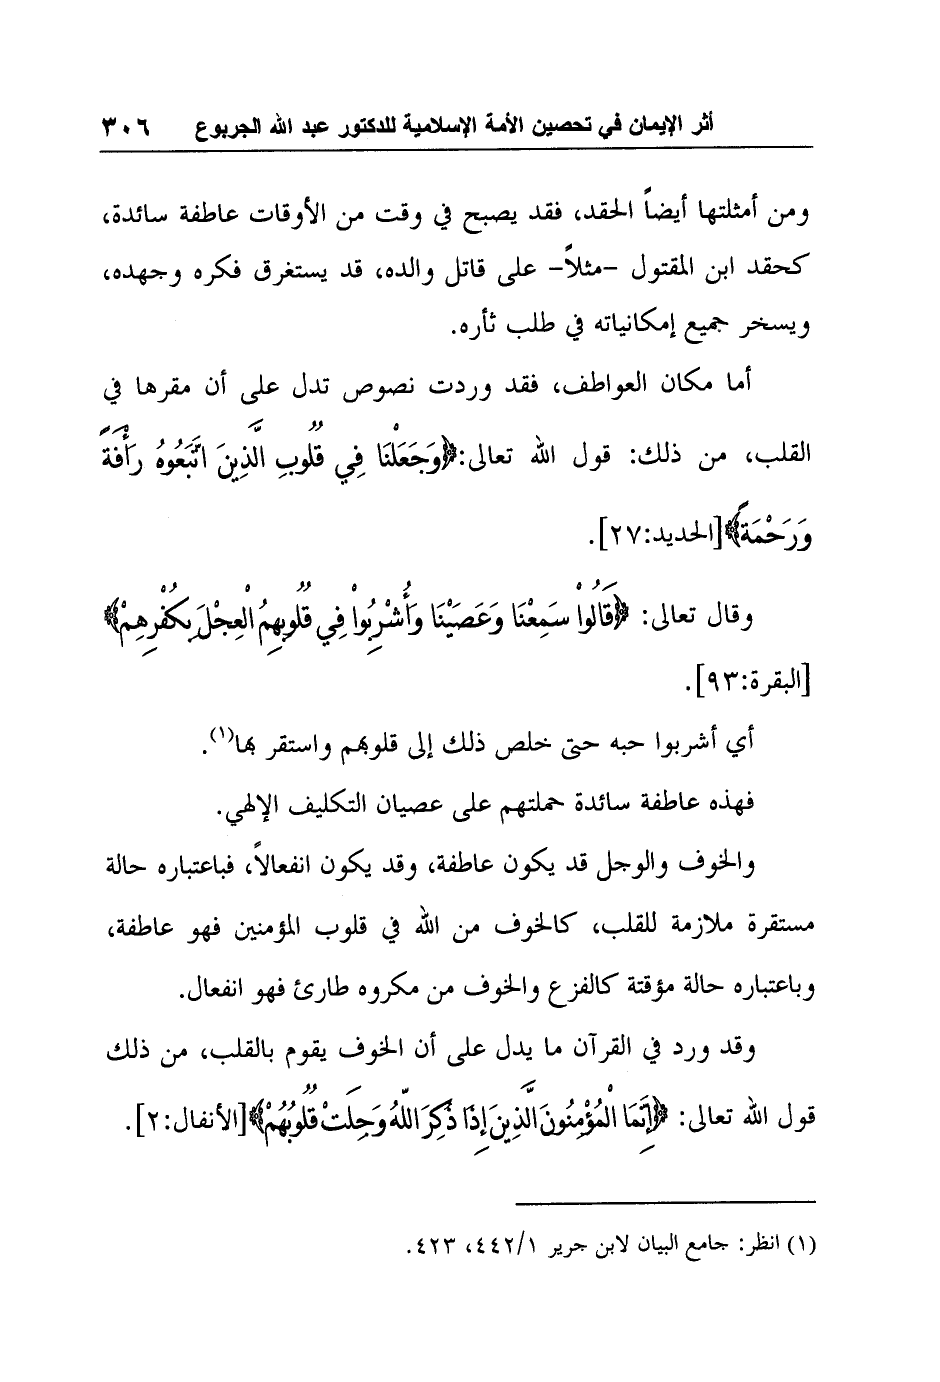 أثر الإيمان في تحصين الأمة الإسلامية للدكتور عبد الله الجربوع ٣٠٦
ومن أمثلتها أيضاً الحقد، فقد يصبح في وقت من الأوقات عاطفة سائدة،
كحقد ابن المقتول -مثلاً- على قاتل والده، قد يستغرق فكره وجهده،
ويسخر جميع إمكانياته في طلب ثأره.
أما مكان العواطف، فقد وردت نصوص تدل على أن مقرها في
القلب، من ذلك: قول الله تعالى:﴿وَجَعَلْنَا فِي قُلُوبِ الَّذِينَ اتَّبَعُوهُ رَأْفَةً
وَرَحْمَةً﴾[الحديد:٢٧].
وقال تعالى: ﴿قَالُوا سَمِعْنَا وَعَصَيْنَا وَأُشْرِبُوا فِي قُلُوبِهِمُ الْعِجْلَ بِكُفْرِهِمْ﴾
[البقرة:٩٣].
أي أشربوا حبه حتى خلص ذلك إلى قلوبهم واستقر بها(١).
فهذه عاطفة سائدة حملتهم على عصيان التكليف الإلهي.
والخوف والوجل قد يكون عاطفة، وقد يكون انفعالاً، فباعتباره حالة
مستقرة ملازمة للقلب، كالخوف من الله في قلوب المؤمنين فهو عاطفة،
وباعتباره حالة مؤقتة كالفزع والخوف من مكروه طارئ فهو انفعال.
وقد ورد في القرآن ما يدل على أن الخوف يقوم بالقلب، من ذلك
قول الله تعالى: ﴿إِنَّمَا الْمُؤْمِنُونَ الَّذِينَ إِذَا ذُكِرَ اللَّهُ وَجِلَتْ قُلُوبُهُمْ﴾[الأنفال:٢].
(١) انظر: جامع البيان لابن جرير ٤٤٢/١، ٤٢٣.